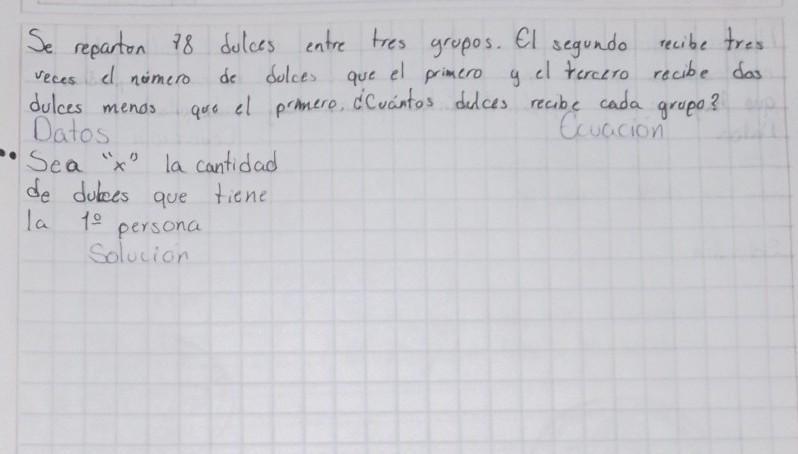 Se reparten 78 dulces entre tres grupos. El segundo recibe tres
veces el número de dulces que el primero y el tercero recibe dos
dulces menos que el primero. ¿Cuántos dulces recibe cada grupo?
Datos Ecuacion
Sea "x" la cantidad
de dulces que tiene
la 1º persona
Solucion